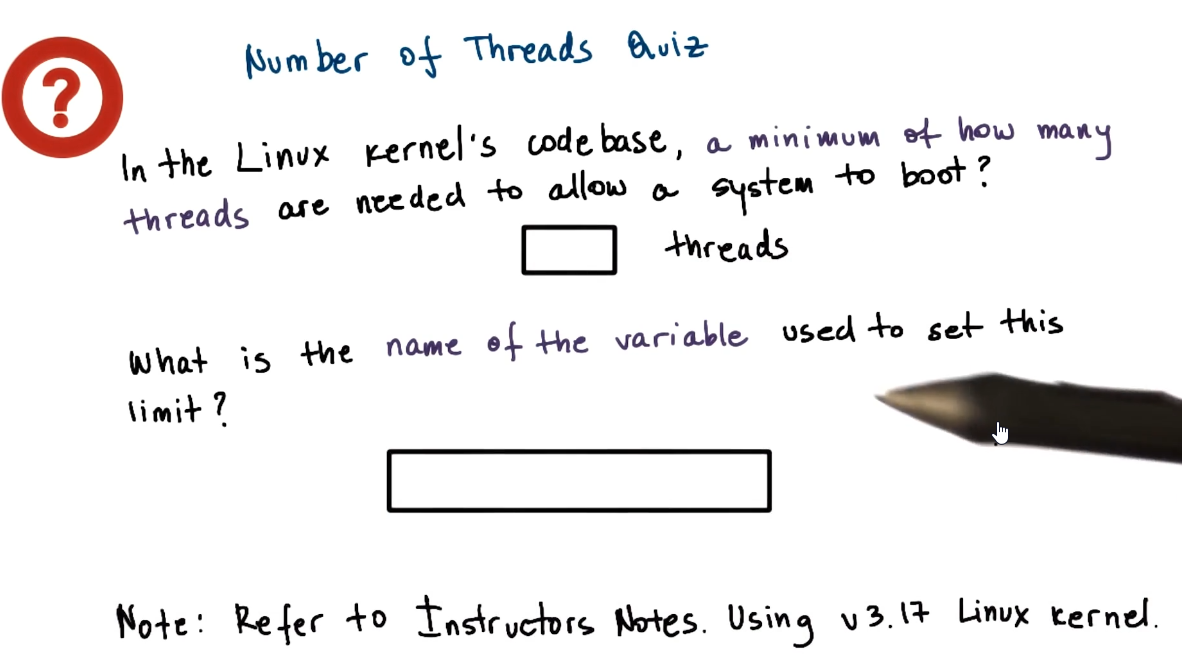 ?
Number of Threads Quiz
In the Linux kernel's codebase, a minimum of how many
threads are needed to allow a system to boot?
threads
What is the name of the variable used to set this
limit?
Note: Refer to Instructors Notes. Using v3.17 Linux kernel.